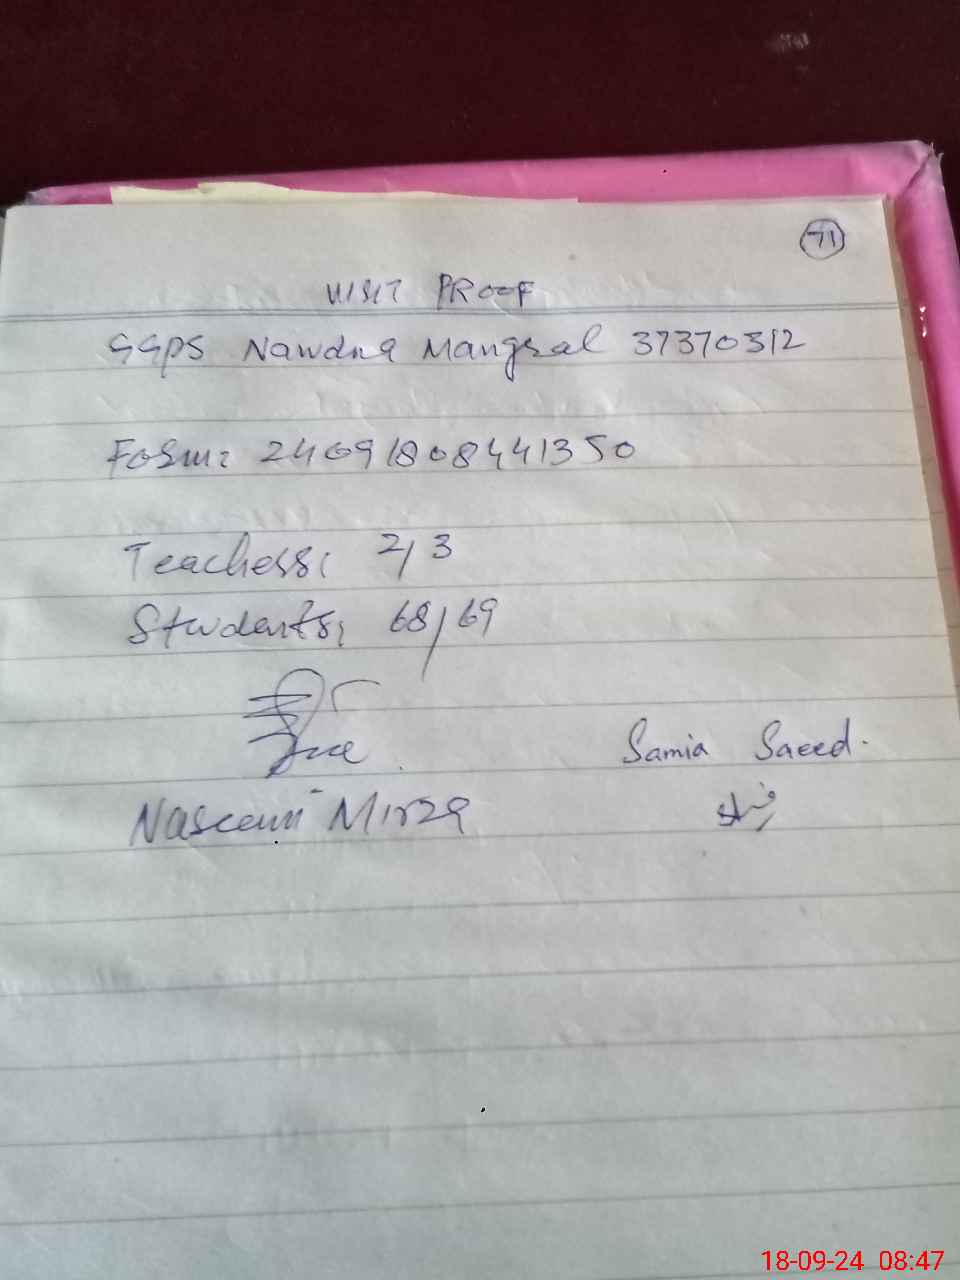 71
VISIT PROOF
GGPS Nawdna Mangral 37370312
Form: 24091808441350
Teachers: 2/3
Students: 68/69
Samia Saeed.
Naseem Mirza
18-09-24 08:47